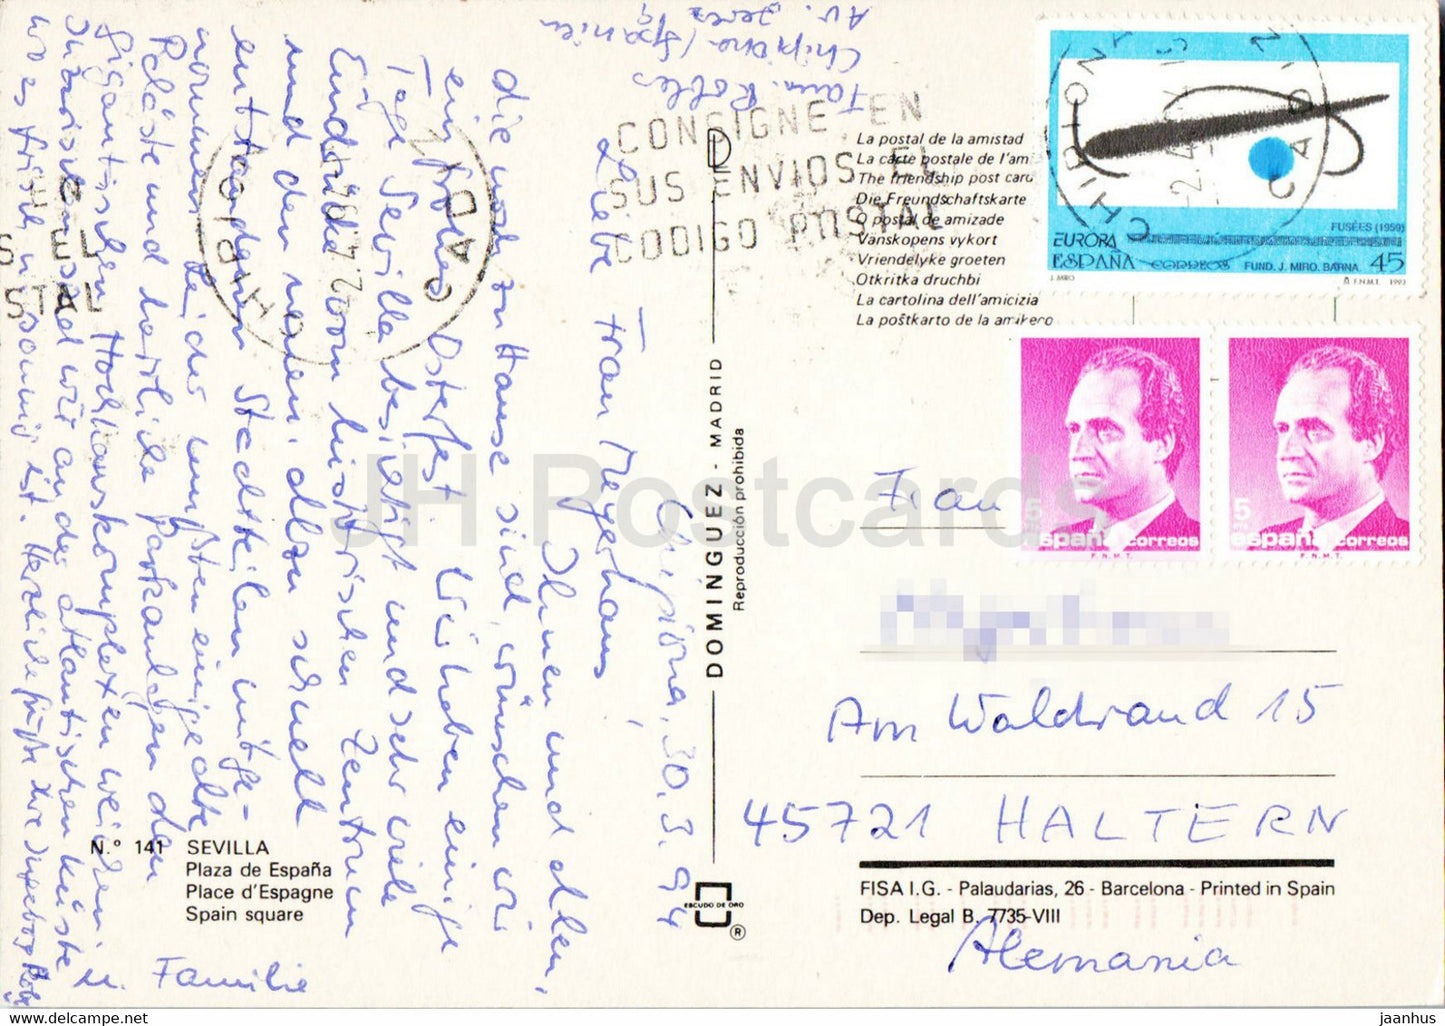 Fam. Robles
Chipiona / Spanien
Av. Jerez
Chipiona, 30.3.94
Liebe Frau Meyerhans,
Ihnen und allen,
die noch zu Hause sind, wünschen wir
ein frohes Osterfest. Wir haben einige
Tage Sevilla besichtigt und sehr viele
Eindrücke vom historischen Zentrum
und den neuen, allzu schnell
entstandenen Stadtteilen mitge-
nommen. Leider mußten einige alte
Paläste und herrliche Parkanlagen den
gigantischen Hochhauskomplexen weichen.
Inzwischen sind wir an der atlantischen Küste
wo es frisch u. sonnig ist. Herzliche Grüße Ihre
Familie
N.º 141 SEVILLA
Plaza de España
Place d'Espagne
Spain square
CONSIGNE EN
SUS ENVIOS EL
CODIGO POSTAL
S EL
STAL
CHIPIONA
CADIZ
DOMINGUEZ - MADRID
Reproducción prohibida
ESCUDO DE ORO
®
La postal de la amistad
La carte postale de l'am
The friendship post card
Die Freundschaftskarte
O postal de amizade
Vänskopens vykort
Vriendelyke groeten
Otkritka druchbi
La cartolina dell'amicizia
La poŝtkarto de la amikeco
FUSÉES (1959)
EUROPA
ESPAÑA CORREOS FUND. J. MIRO. BARNA. 45
J. MIRO F.N.M.T. 1993
5 PTA
españa correos
F.N.M.T.
5 PTA
españa correos
F.N.M.T.
Frau
Am Waldrand 15
45721 HALTERN
FISA I.G. - Palaudarias, 26 - Barcelona - Printed in Spain
Dep. Legal B. 7735-VIII
Alemania
JH Postcards
www.delcampe.net
jaanhus